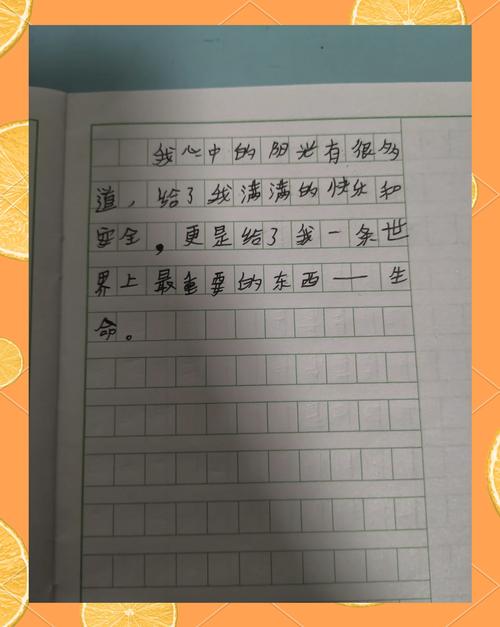 我心中的阳光有很多
道，给了我满满的快乐和
安全，更是给了我一条世
界上最重要的东西——生
命。